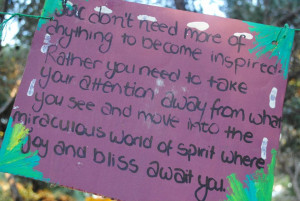 You don't need more of
anything to become inspired.
Rather you need to take
your attention away from what
you see and move into the
miraculous world of spirit where
joy and bliss await you.